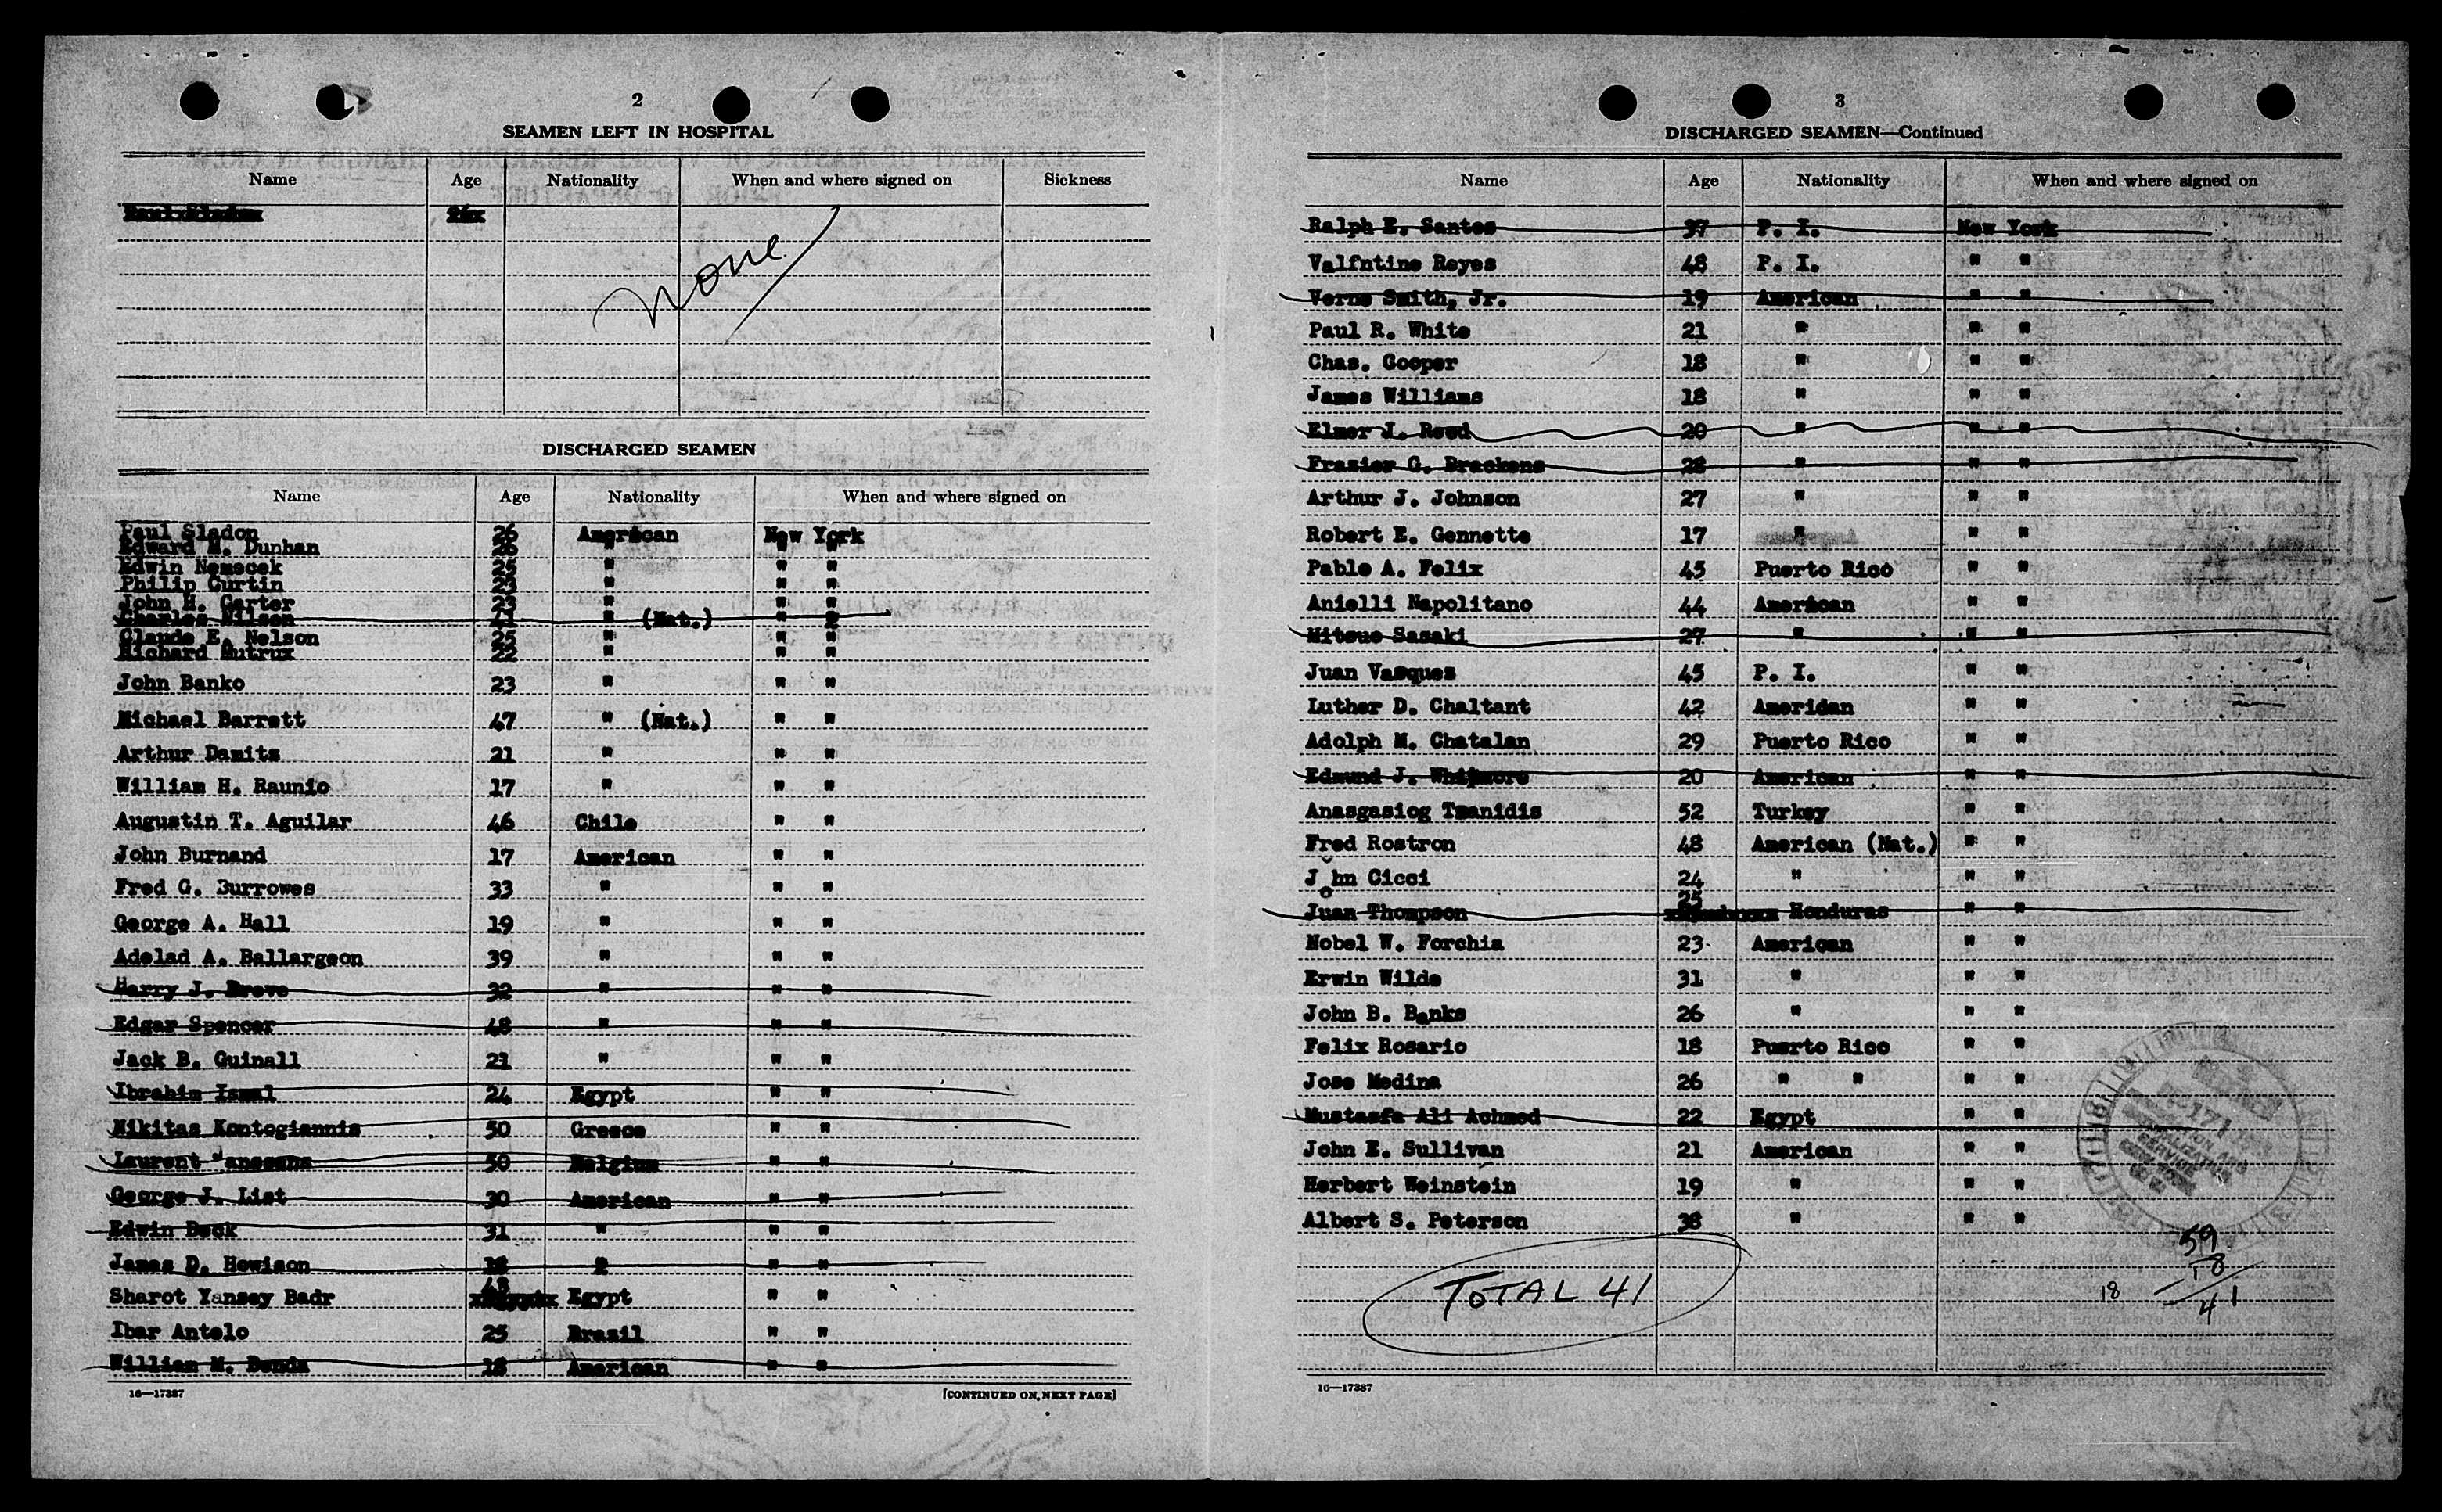 2
SEAMEN LEFT IN HOSPITAL
Name Age Nationality When and where signed on Sickness
None
DISCHARGED SEAMEN
Name Age Nationality When and where signed on
Paul Sladon 26 American New York
Edward M. Dunhan 26 " " "
Edwin Nemecek 25 " " "
Philip Curtin 23 " " "
John H. Carter 23 " " "
Charles Nilsen 41 " (Nat.) " "
Claude E. Nelson 25 " " "
Richard Dutrux 22 " " "
John Banko 23 " " "
Michael Barrett 47 " (Nat.) " "
Arthur Damits 21 " " "
William H. Raunio 17 " " "
Augustin T. Aguilar 46 Chile " "
John Burnand 17 American " "
Fred G. Burrowes 33 " " "
George A. Hall 19 " " "
Adelad A. Ballargeon 39 " " "
Harry J. Breve 32 " " "
Edgar Spencer 48 " " "
Jack B. Guinall 21 " " "
Ibrahim Ismal 24 Egypt " "
Nikitas Kontogiannis 50 Greece " "
Laurent Janssens 50 Belgium " "
George J. List 30 American " "
Edwin Beck 31 " " "
James D. Howison 18 " " "
Sharot Yansey Badr 48 Egypt " "
Ibar Antelo 25 Brasil " "
William M. Bonda 18 American " "
16—17387 [CONTINUED ON NEXT PAGE]
3
DISCHARGED SEAMEN—Continued
Name Age Nationality When and where signed on
Ralph E. Santos 37 P. I. New York
Valfntine Reyes 48 P. I. " "
Verne Smith, Jr. 19 American " "
Paul R. White 21 " " "
Chas. Cooper 18 " " "
James Williams 18 " " "
Elmer J. Reed 20 " " "
Frazier G. Brackens 28 " " "
Arthur J. Johnson 27 " " "
Robert E. Gennette 17 " " "
Pablo A. Felix 45 Puerto Rico " "
Anielli Napolitano 44 American " "
Mitsuo Sasaki 27 " " "
Juan Vasquez 45 P. I. " "
Luther D. Chaltant 42 Ameridan " "
Adolph M. Chatalan 29 Puerto Rico " "
Edmund J. Whitmore 20 American " "
Anasgasiog Tzanidis 52 Turkey " "
Fred Rostron 48 American (Nat.) " "
John Cicci 24 " " "
Juan Thompson 25 Honduras " "
Nobel W. Forchia 23 American " "
Erwin Wilde 31 " " "
John B. Banks 26 " " "
Felix Rosario 18 Puerto Rico " "
Jose Medina 26 " " " "
Mustaefa Ali Achmed 22 Egypt " "
John E. Sullivan 21 American " "
Herbert Weinstein 19 " " "
Albert S. Peterson 38 " " "
TOTAL 41
59
18
18 41
16—17387